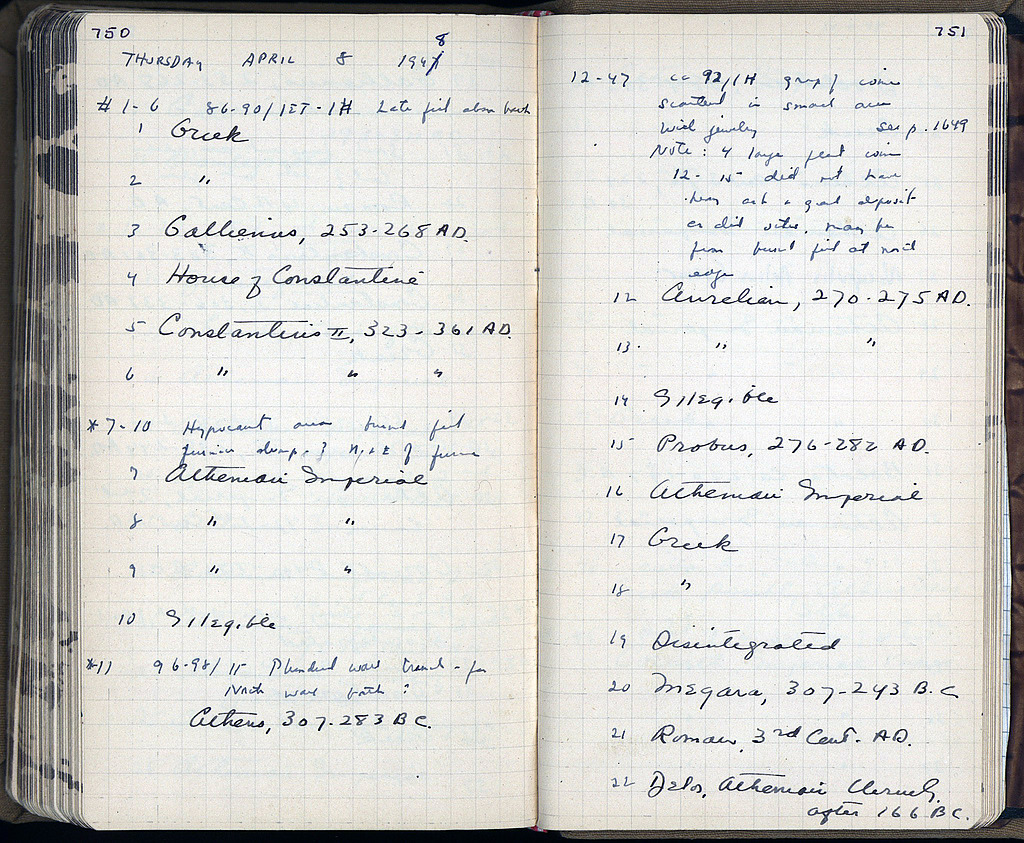 750
THURSDAY APRIL 8 1948
# 1-6 86-90/IET-IH Late fill above bath
1 Greek
2 "
3 Gallienus, 253-268 AD.
4 House of Constantine
5 Constantius II, 323-361 AD.
6 " " "
*7-10 Hypocaust area burnt fill
furnace dump - N. + E of furnace
7 Athenian Imperial
8 " "
9 " "
10 Illegible
*11 96-98/ Plundered wall trench - for
North wall bath ?
Athens, 307-283 BC.
751
12-47 ca 92/1H group of coins
scattered in small area
with jewelry see p. 1649
Note : 4 large coins
12-15 did not have
green deposit
as did others, may be
from burnt fill at north
edge
12 Aurelian, 270-275 AD.
13. " "
14 Illegible
15 Probus, 276-282 AD.
16 Athenian Imperial
17 Greek
18 "
19 Disintegrated
20 Megara, 307-243 B.C
21 Roman, 3rd Cent. AD.
22 Delos, Athenian Cleruch.
after 166 BC.